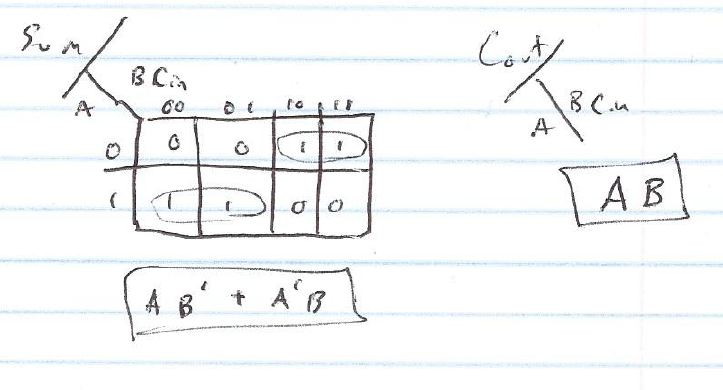 Sum
A BCin
00 01 10 11
0 0 0 1 1
1 1 1 0 0
AB' + A'B
Cout
A BCin
AB